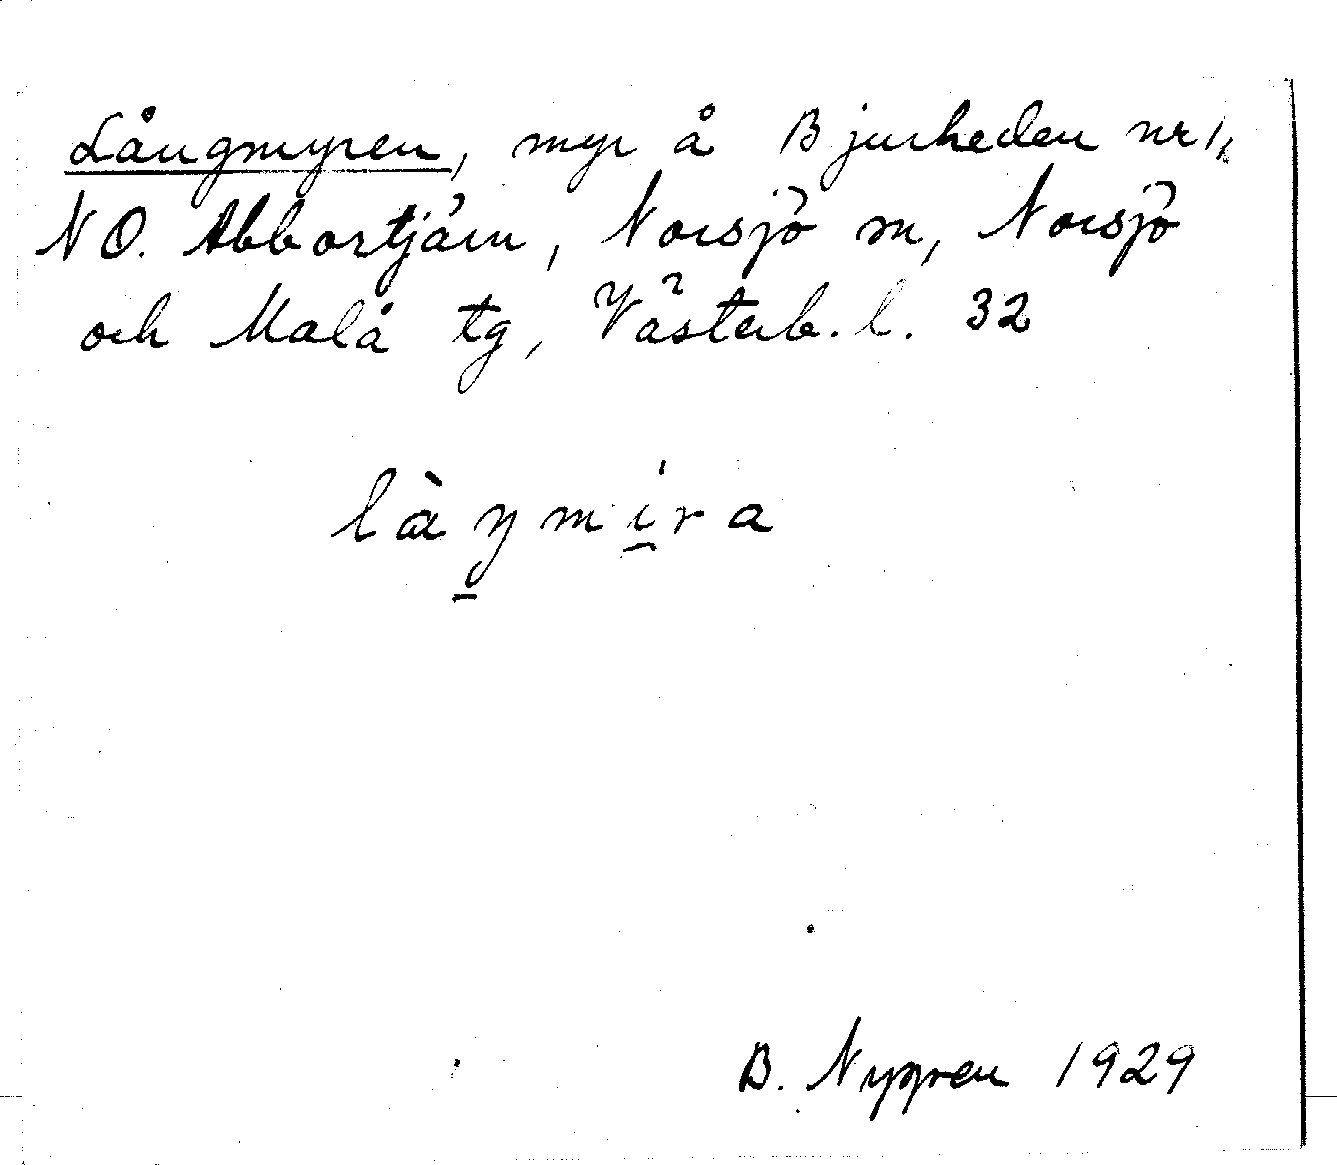 Långmyren, myr å Bjurheden nr 1,
NO. Abbortjärn, Norsjö sn, Norsjö
och Malå tg, Västerb. l. 32
là̱ŋmi̱ra
B. Nygren 1929